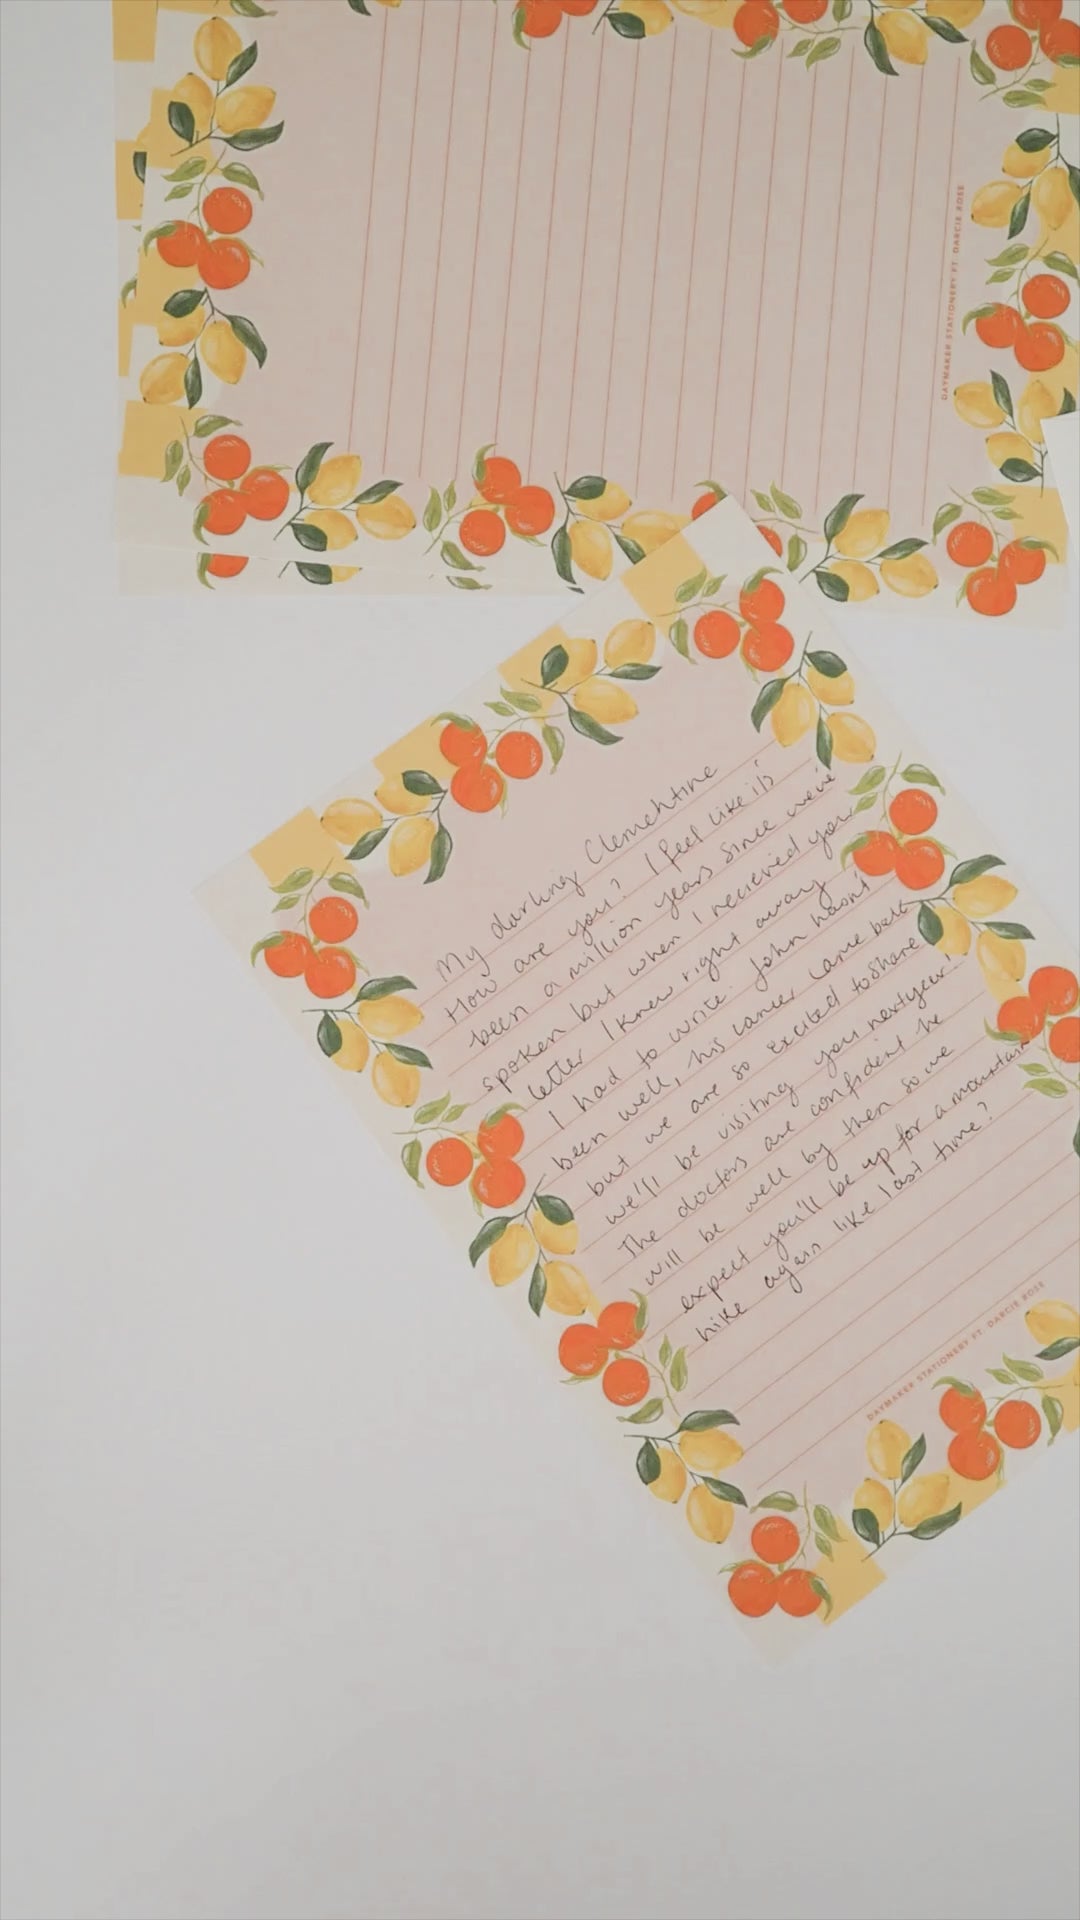 DAYMAKER STATIONERY FT. DARCIE ROSE
My darling Clementine
How are you? I feel like it's
been a million years since we've
spoken but when I recieved your
letter I knew right away
I had to write. John hasn't
been well, his cancer came back
but we are so excited to share
we'll be visiting you next year!
The doctors are confident he
will be well by then so we
expect you'll be up for a mountain
hike again like last time?
DAYMAKER STATIONERY FT. DARCIE ROSE